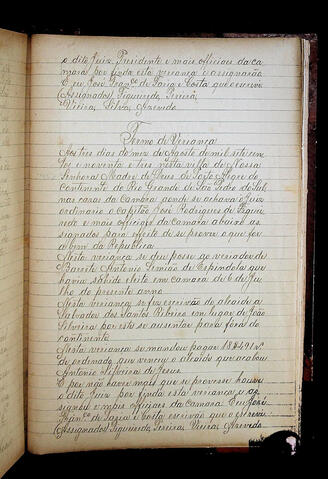 o dito Juiz Presidente e mais officiaes da ca
mara por finda esta veriança e assignarão
E eu José Franco de Faria e Costa que escrevi
(Assignados) Figueiredo, Pereira,
Vieira, Silva, Azevedo.
Termo de Veriança
Aos tres dias do mez de Agosto de mil setecen
tos e noventa e tres nesta villa de Nossa
Senhora Madre de Deus de Porto Alegre do
continente do Rio Grande de São Pedro do Sul
nas casas da Camara donde se achava o Juiz
ordinario o capitão José Rodrigues de Figuei
redo e mais officiaes da camara abaixo as
signados para effeito de se prover o que for
a bem da Republica
Nesta veriança se deu posse ao vereador de
Barrete Antonio Simião de Espindola que
havia sahido eleito em camara de 6 de Ju
lho do presente anno
Nesta veriança se fez escrivão do alcaide a
Salvador dos Santos Ribeiro em lugar de João
Silveira por este se ausentar para fora do
continente
Nesta veriança se mandou pagar
de ordenado que venceu o alcaide que acabou
Antonio Silveira de Jesus.
E por não haver mais que se provesse houve
o dito Juiz por finda esta veriança e as
signou e mais officiaes da camara E eu José
Franco de Faria e Costa escrivão que o escrevi
(Assignados) Figueiredo, Pereira, Vieira, Azevedo